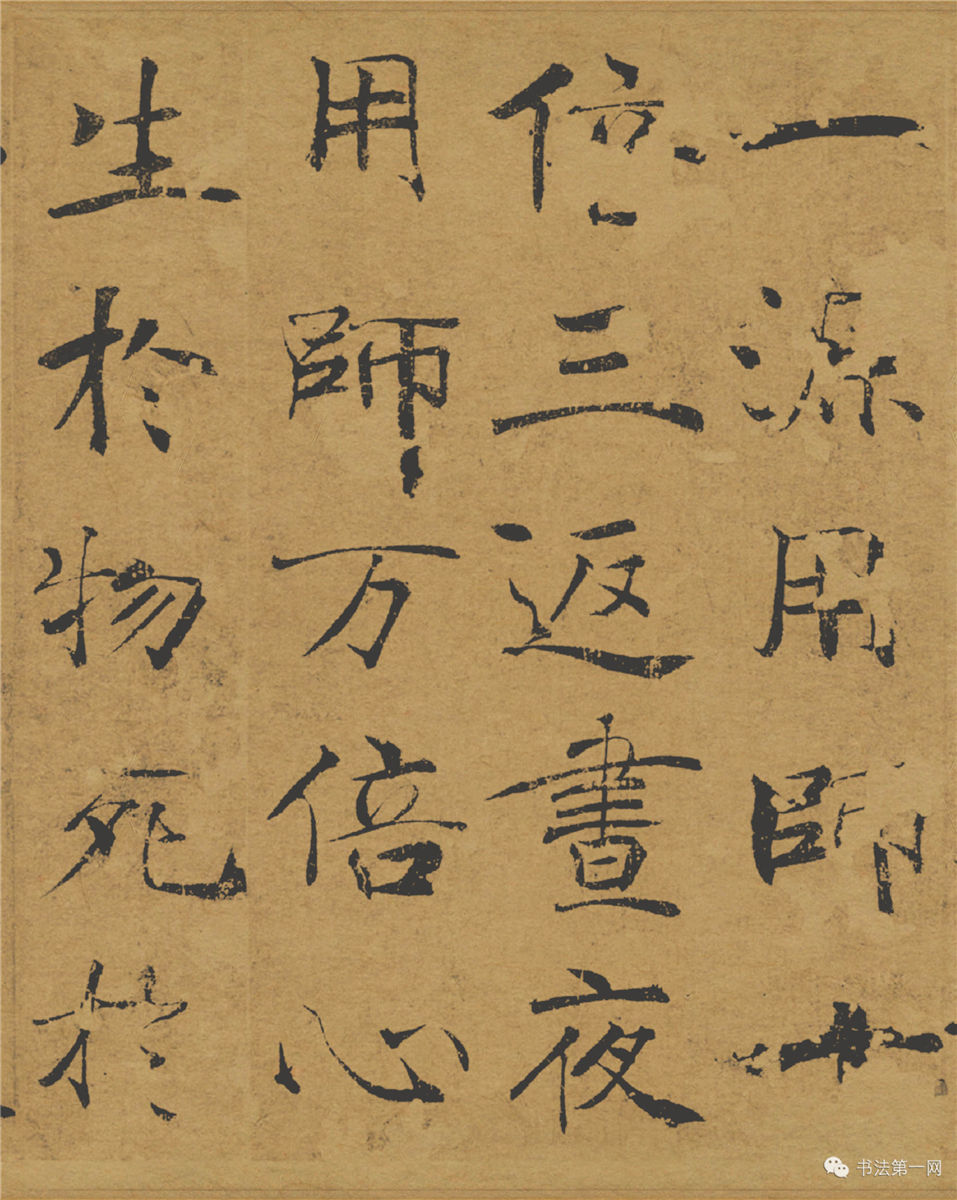 一源用師十
倍三返晝夜
用師万倍心
生於物死於
书法第一网